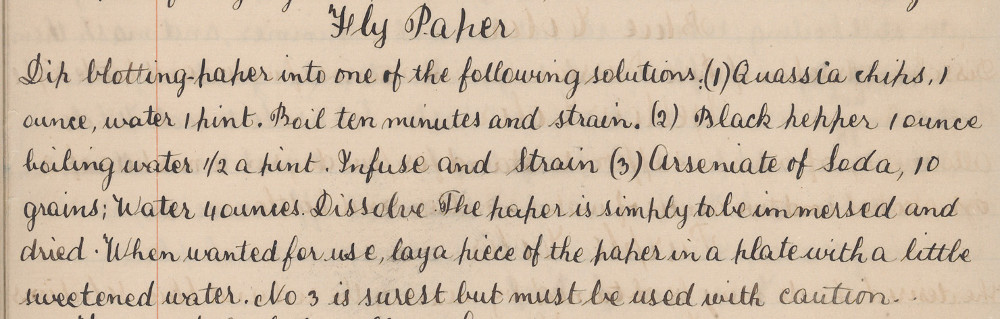 Fly Paper
Dip blotting-paper into one of the following solutions. (1) Quassia chips, 1
ounce, water 1 pint. Boil ten minutes and strain. (2) Black pepper 1 ounce
boiling water 1/2 a pint. Infuse and Strain (3) Arseniate of Soda, 10
grains; Water 4 ounces. Dissolve. The paper is simply to be immersed and
dried. When wanted for use, lay a piece of the paper in a plate with a little
sweetened water. No 3 is surest but must be used with caution.